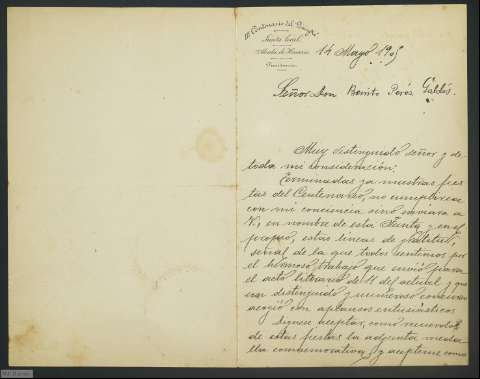 III Centenario del Quijote
Junta local
Alcalá de Henares
Presidencia
14 Mayo 1905
Señor Don Benito Peréz Galdós.
Muy distinguido señor y de
toda mi consideración:
Terminadas ya nuestras fies
tas del Centenario, no cumpliria
con mi conciencia sino enviara a
V., en nombre de esta Junta y en el
propio, estas lineas de gratitud,
señal de la que todos sentimos por
el hermoso trabajo que envió para
el acto literario del 11 del actual y que
un distinguido y numeroso concurso
acogió con aplausos entusiásticos
Dignese aceptar, como recuerdo
de estas fiestas la adjunta meda
lla conmemorativa, y acepteme como